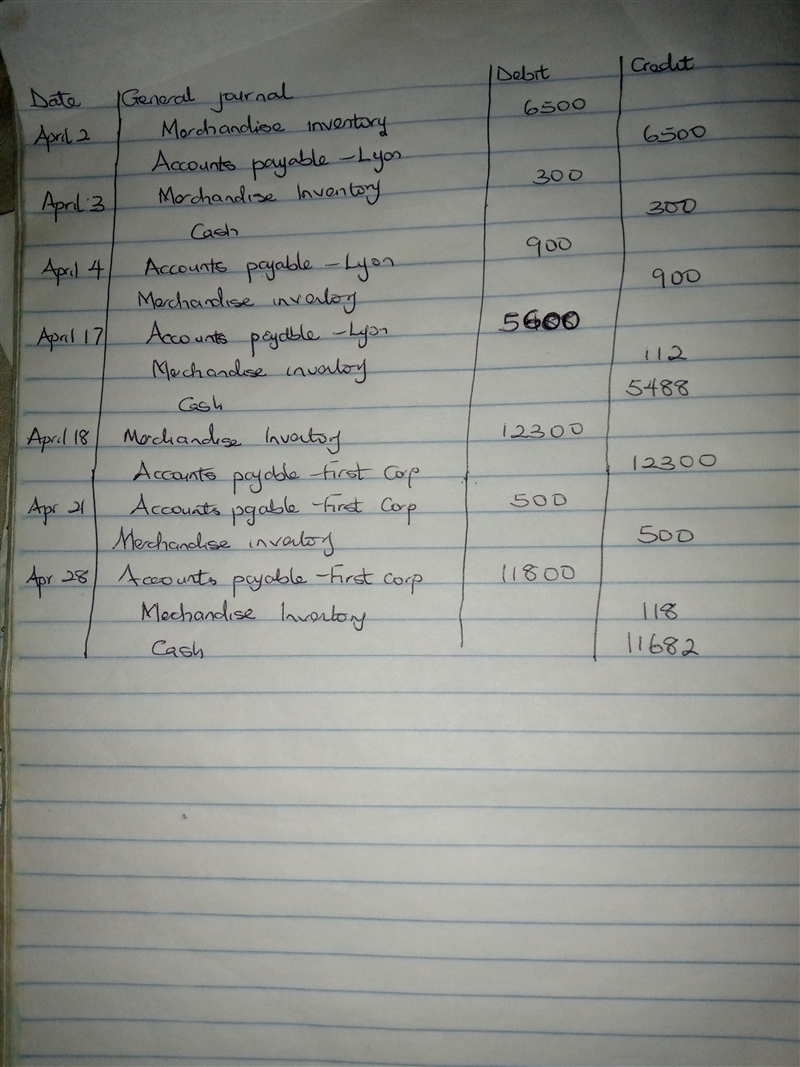 Date General journal Debit Credit
April 2 Merchandise inventory 6500
Accounts payable - Lyon 6500
April 3 Merchandise Inventory 300
Cash 300
April 4 Accounts payable - Lyon 900
Merchandise inventory 900
April 17 Accounts payable - Lyon 5600
Merchandise inventory 112
Cash 5488
April 18 Merchandise Inventory 12300
Accounts payable - First Corp 12300
Apr 21 Accounts pgable - First Corp 500
Merchandise inventory 500
Apr 28 Accounts payable - First Corp 11800
Mechandise Inventory 118
Cash 11682